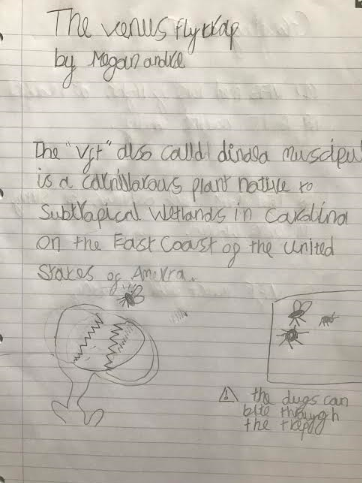 The venus flytrap
by Megan andre
The "vft" also calld dinaea muscipul
is a carnillarous plant nature to
Subtrapical wetlands in Carolina
on the East Coast of the united
States of Amikra.
⚠ the bugs can
bite through
the trap